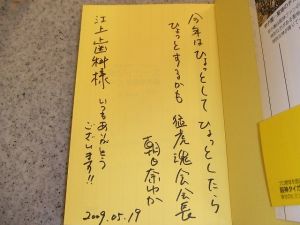 今年はひょっとして ひょっとしたら
ひょっとするかも 猛虎魂会会長
朝日奈ゆか
江上歯科様
いつもありがとう
ございます!!
2009.05.19